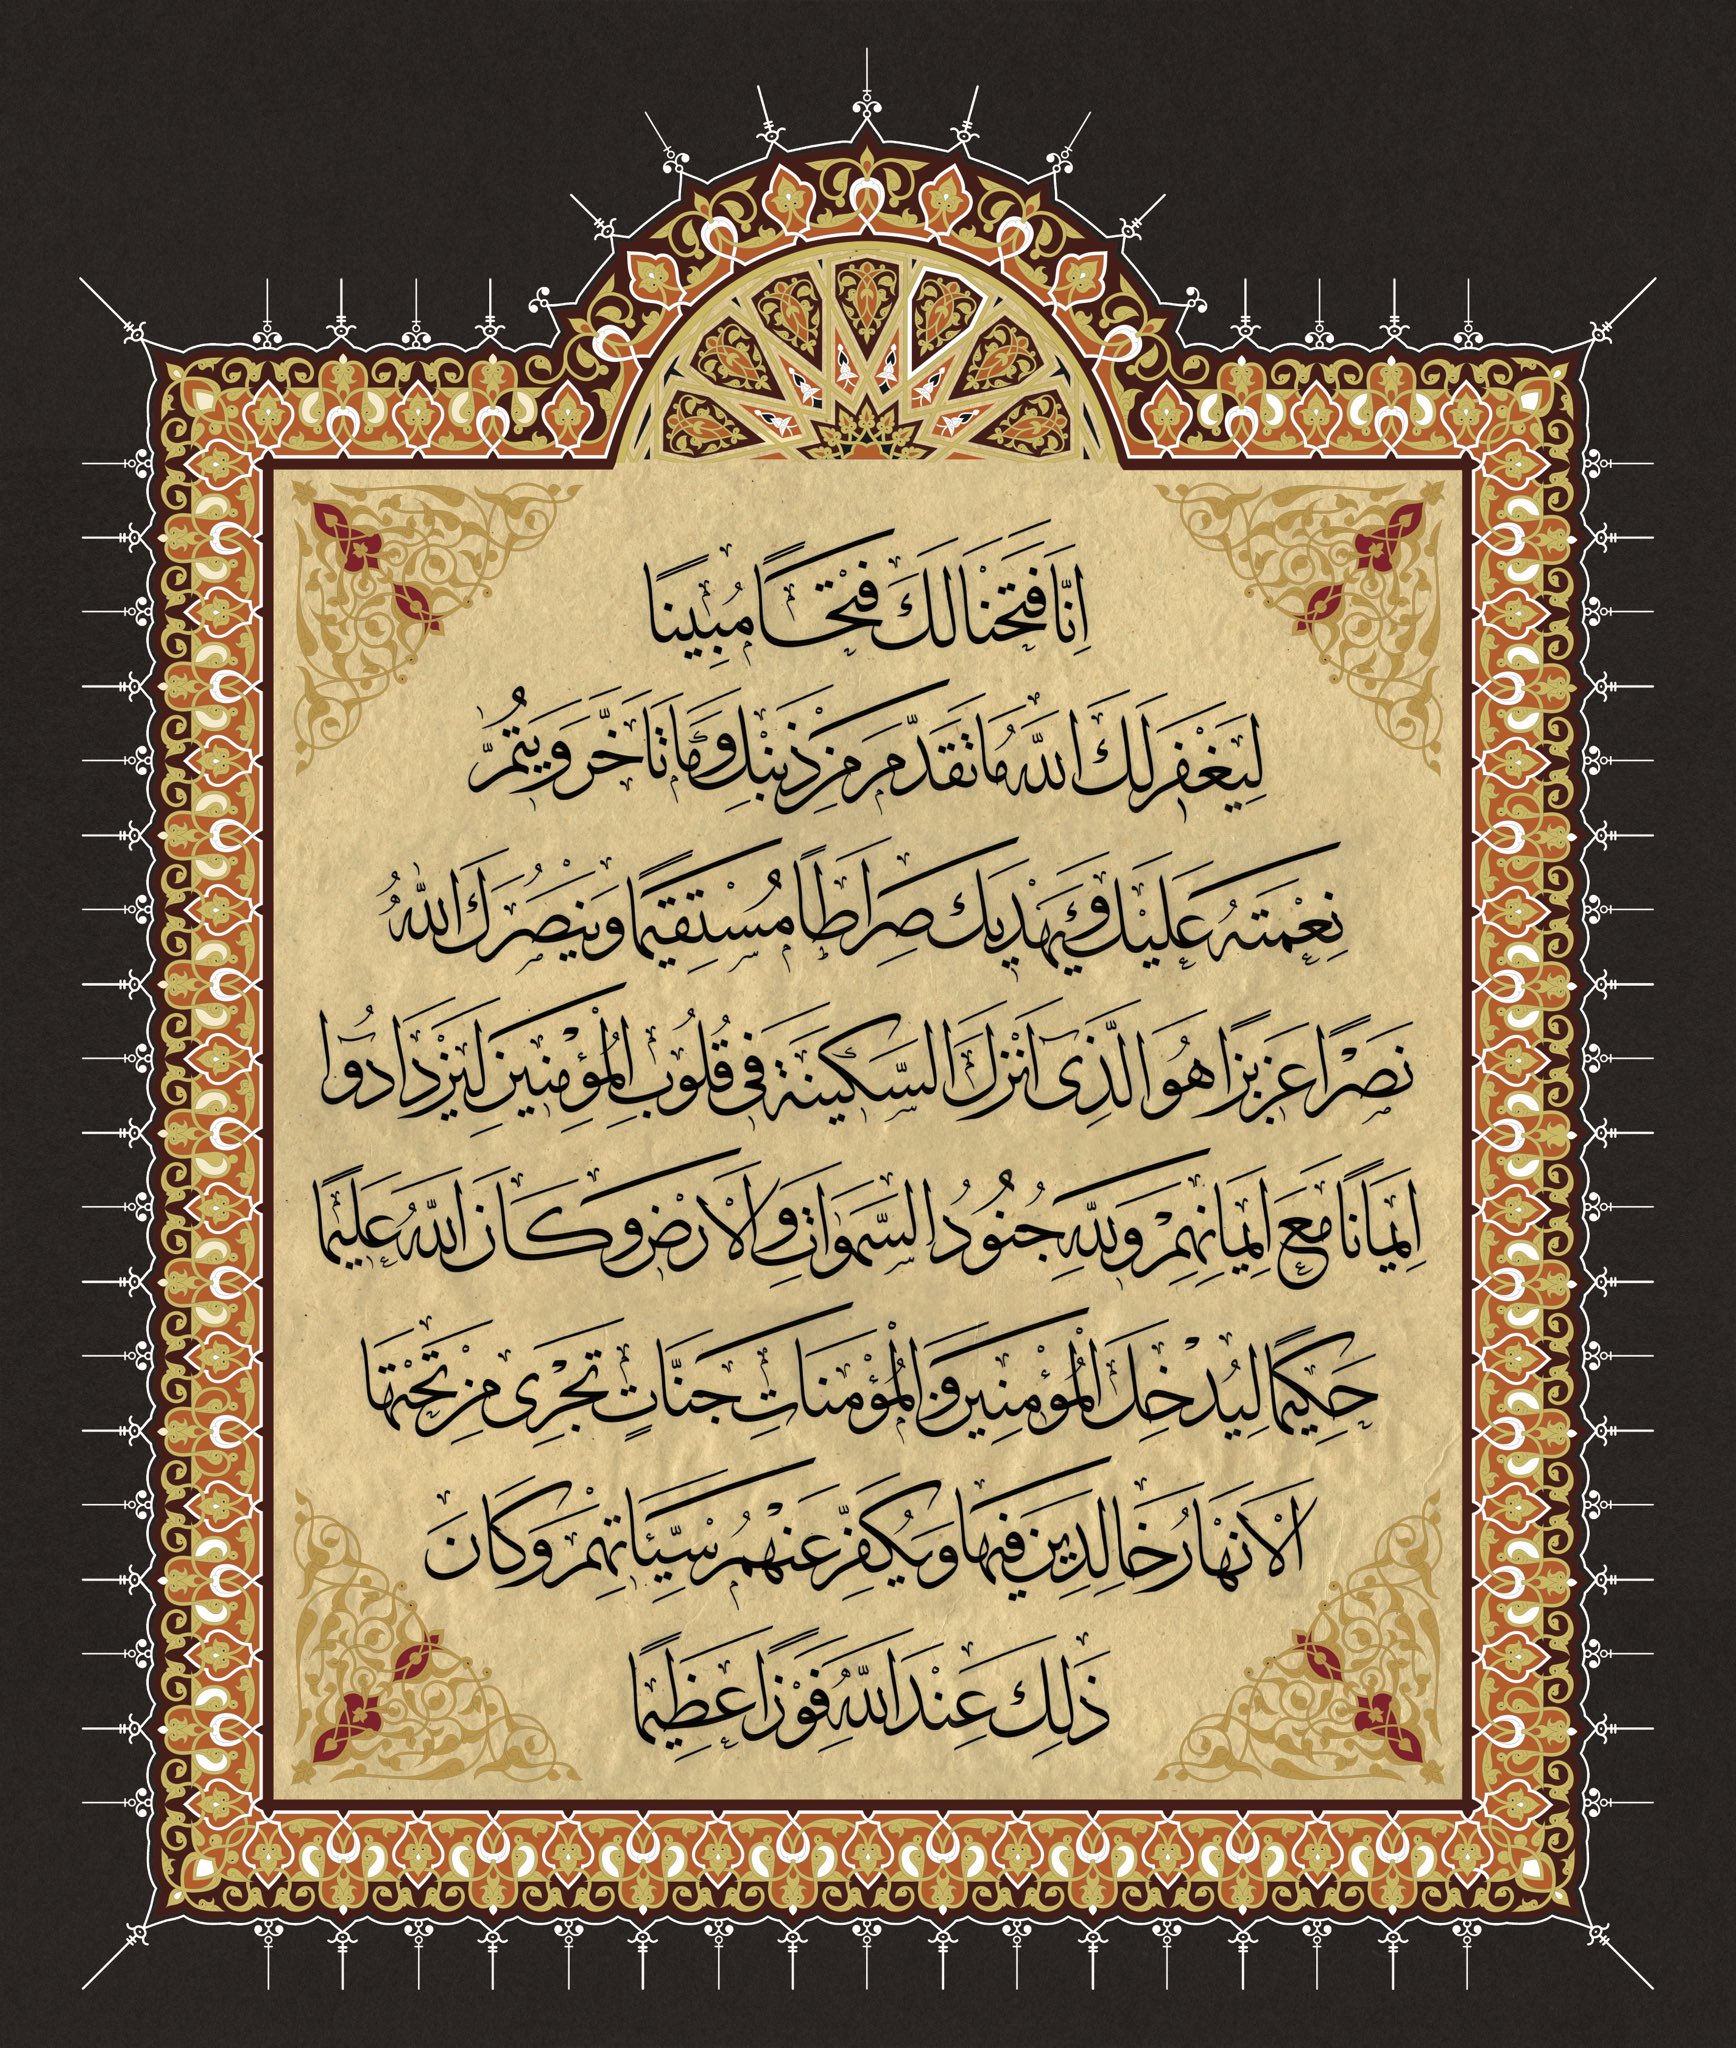 اِنَّا فَتَحْنَا لَكَ فَتْحًا مُبِينًا
لِيَغْفِرَ لَكَ اللّٰهُ مَا تَقَدَّمَ مِنْ ذَنْبِكَ وَمَا تَاَخَّرَ وَيُتِمَّ
نِعْمَتَهُ عَلَيْكَ وَيَهْدِيَكَ صِرَاطًا مُسْتَقِيمًا وَيَنْصُرَكَ اللّٰهُ
نَصْرًا عَزِيزًا هُوَ الَّذِى اَنْزَلَ السَّكِينَةَ فِى قُلُوبِ الْمُؤْمِنِينَ لِيَزْدَادُوا
اِيمَانًا مَعَ اِيمَانِهِمْ وَلِلّٰهِ جُنُودُ السَّمٰوَاتِ وَالْاَرْضِ وَكَانَ اللّٰهُ عَلِيمًا
حَكِيمًا لِيُدْخِلَ الْمُؤْمِنِينَ وَالْمُؤْمِنَاتِ جَنَّاتٍ تَجْرِى مِنْ تَحْتِهَا
الْاَنْهَارُ خَالِدِينَ فِيهَا وَيُكَفِّرَ عَنْهُمْ سَيِّئَاتِهِمْ وَكَانَ
ذٰلِكَ عِنْدَ اللّٰهِ فَوْزًا عَظِيمًا